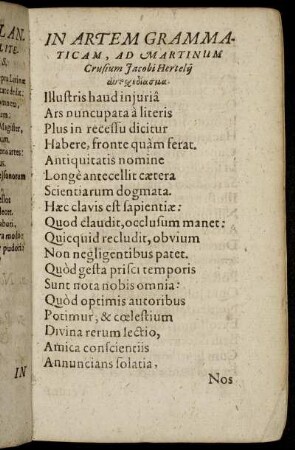 LAN.
LITE.
&
IN ARTEM GRAMMA-
TICAM, AD MARTINUM
Crusium Jacobi Hertelij
Illustris haud injuriâ
Ars nuncupata à literis
Plus in recessu dicitur
Habere, fronte quàm ferat.
Antiquitatis nomine
Longè antecellit cætera
Scientiarum dogmata.
Hæc clavis est sapientiæ:
Quod claudit, occlusum manet:
Quicquid recludit, obvium
Non negligentibus patet.
Quòd gesta prisci temporis
Sunt nota nobis omnia:
Quòd optimis autoribus
Potimur, & cœlestium
Divina rerum lectio,
Amica conscientiis
Annuncians solatia,
IN
Nos